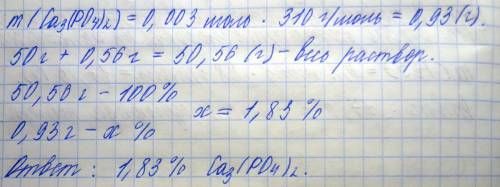 m(Ca₃(PO₄)₂) = 0,003 моль · 310 г/моль = 0,93 (г).
50 г + 0,56 г = 50,56 (г) – весь раствор.
50,56 г – 100%
x = 1,83 %
0,93 г – x %
Ответ: 1,83 % Ca₃(PO₄)₂.